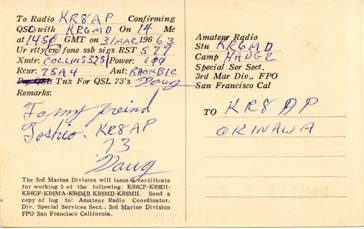 To Radio KR8AP Confirming
QSO with KR6MD On 14 Mc
at 1450 GMT on 31 MAR 1963
Ur rtty cw fone ssb sigs RST 579
Xmtr: COLLINS 32S1 Power: 100
Rcvr: 75A4 Ant: RHOMBIC
Tnx For QSL 73's Doug
Remarks:
To my freind
Toshio. KR8AP
73
Doug
The 3rd Marine Division will issue a certificate
for working 5 of the following:
Send a
copy of log to: Amateur Radio Coordinator.
Div. Special Services Sect., 3rd Marine Division
FPO San Francisco, California.
Amateur Radio
Stn KR6MD
Camp HAUGE
Special Ser Sect.
3rd Mar Div., FPO
San Francisco Cal
TO KR8AP
OKINAWA